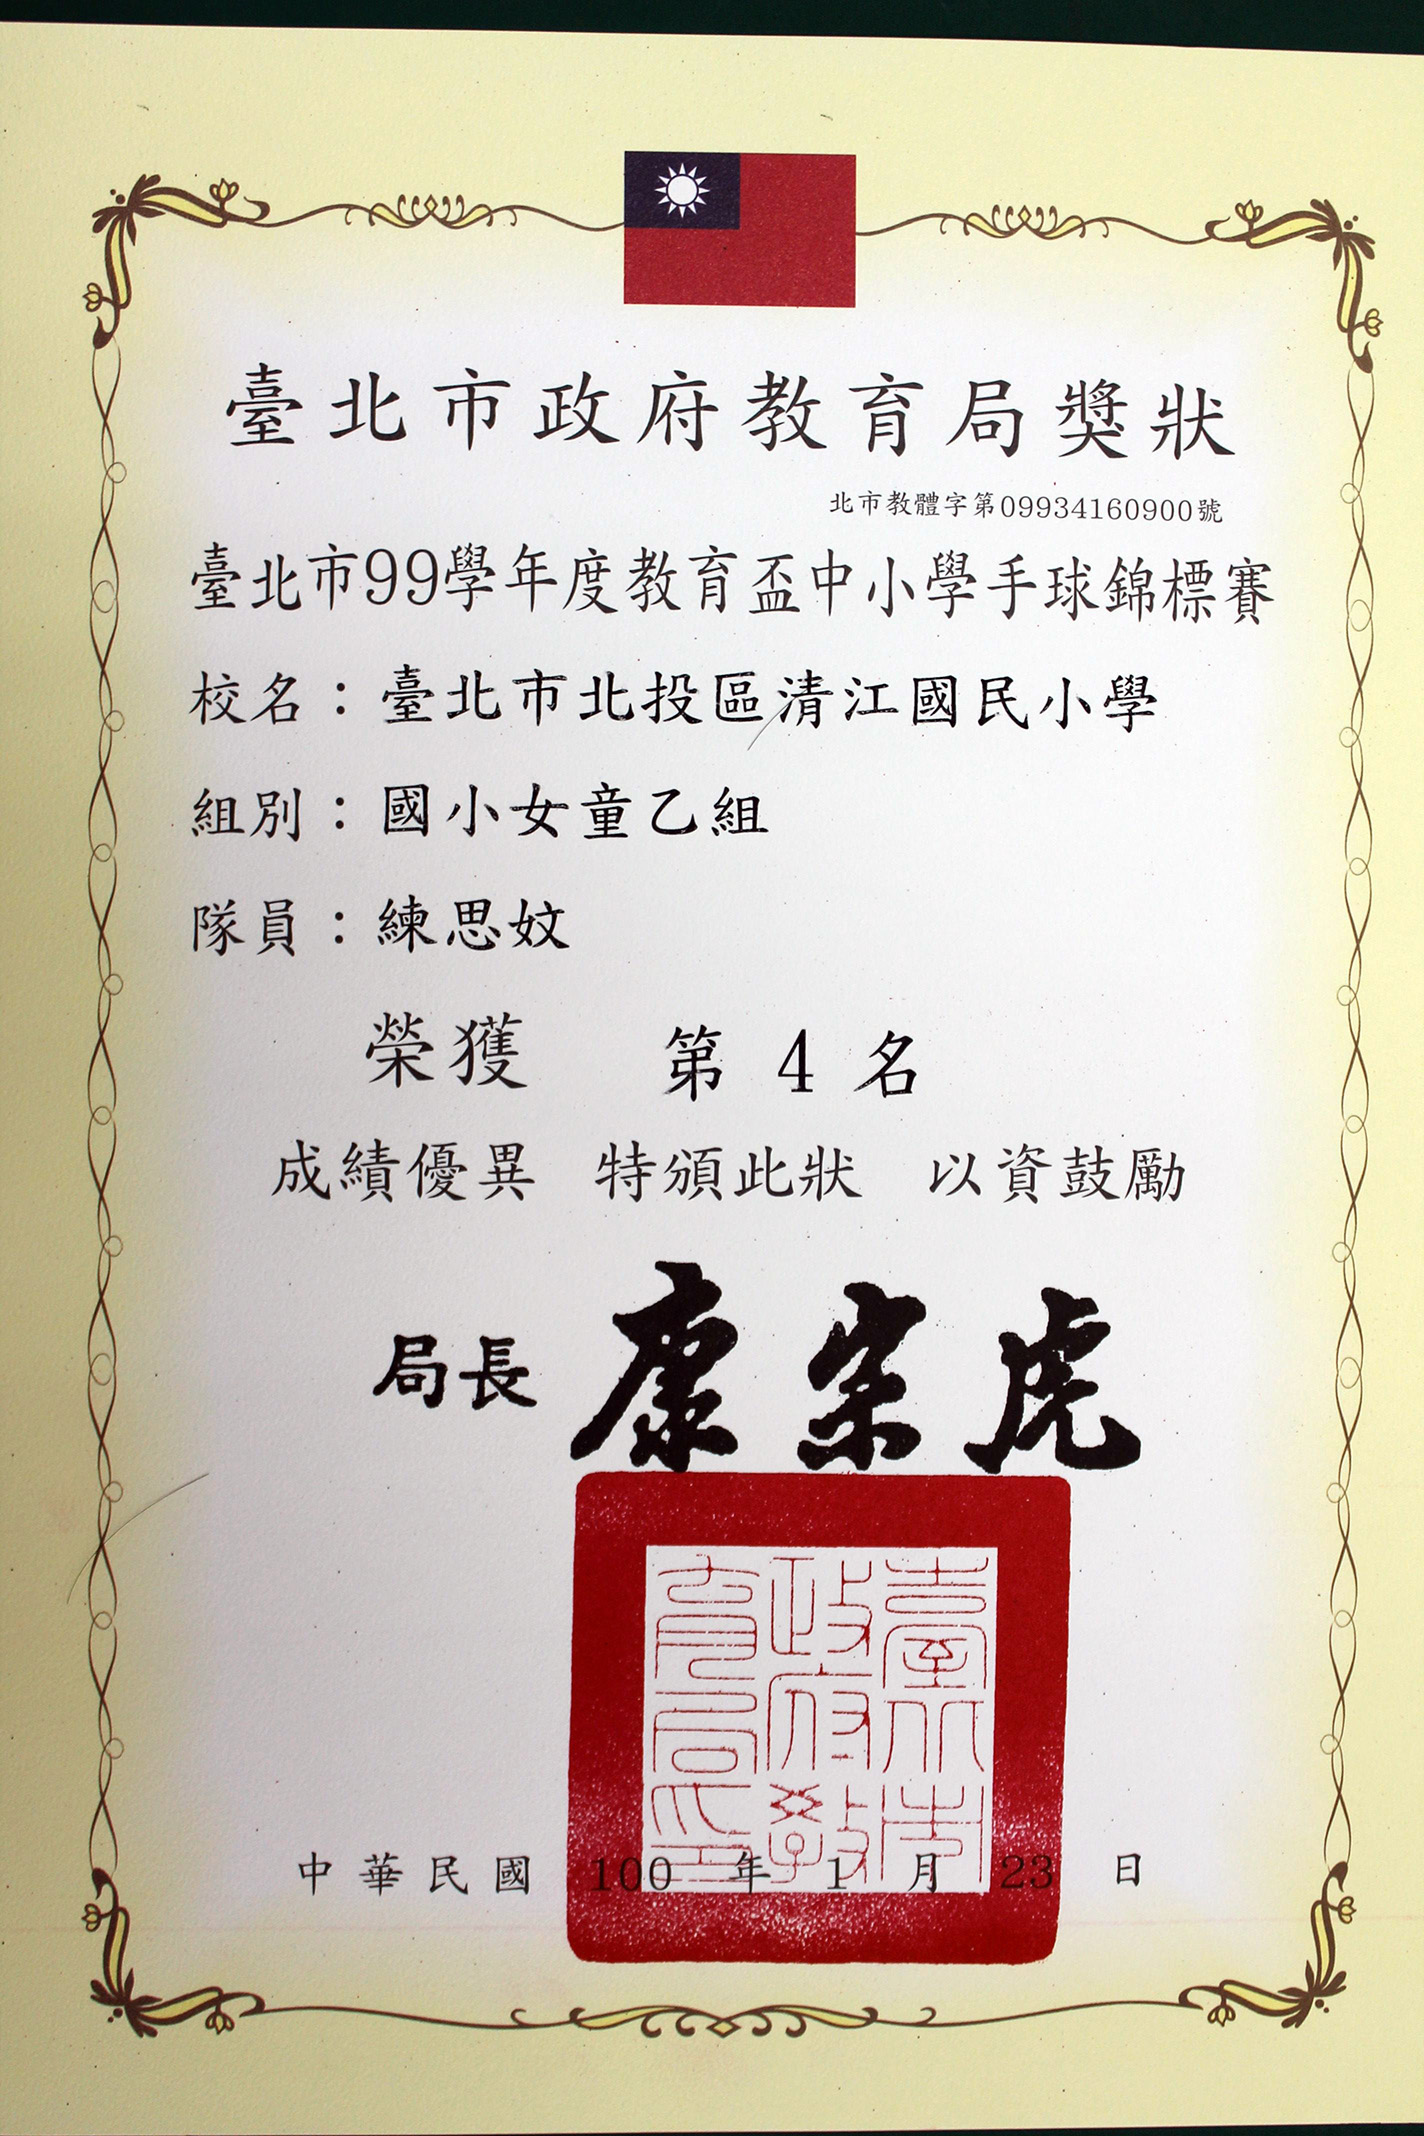 臺北市政府教育局獎狀
北市教體字第09934160900號
臺北市99學年度教育盃中小學手球錦標賽
校名：臺北市北投區清江國民小學
組別：國小女童乙組
隊員：練思妏
榮獲 第 4 名
成績優異 特頒此狀 以資鼓勵
局長 康宗虎
臺北市政府教育局印
中華民國 100 年 1 月 23 日